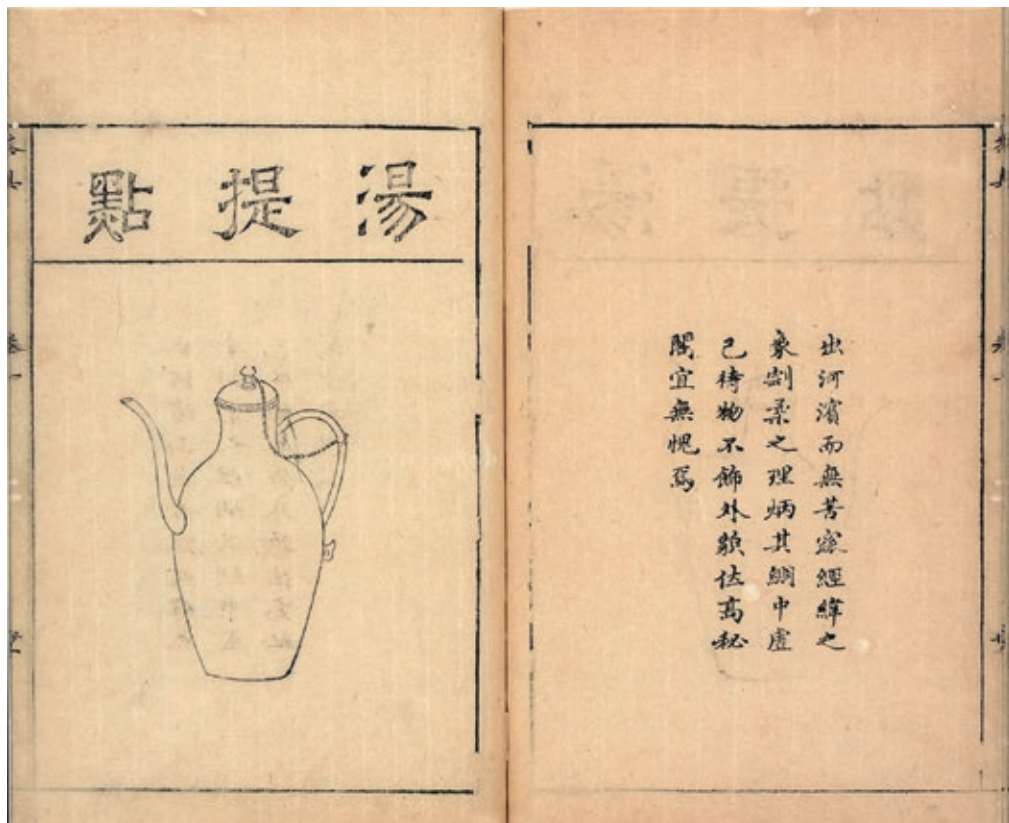 出河濱而無苦窳經緯之
象剛柔之理炳其綳中虛
己待物不飾外貌位高秘
閣宜無愧焉
湯提點
卷一